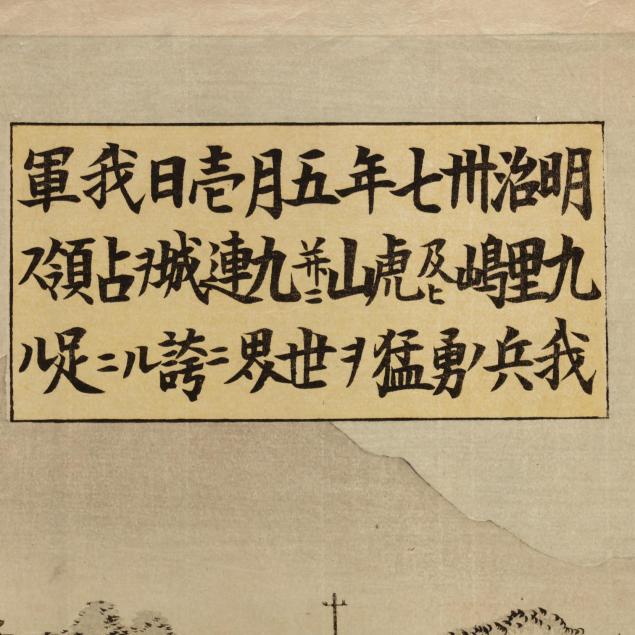 明治卅七年五月壱日我軍
九里嶋及ヒ虎山並ニ九連城ヲ占領ス
我兵ノ勇猛ヲ世界ニ誇ルニ足ル